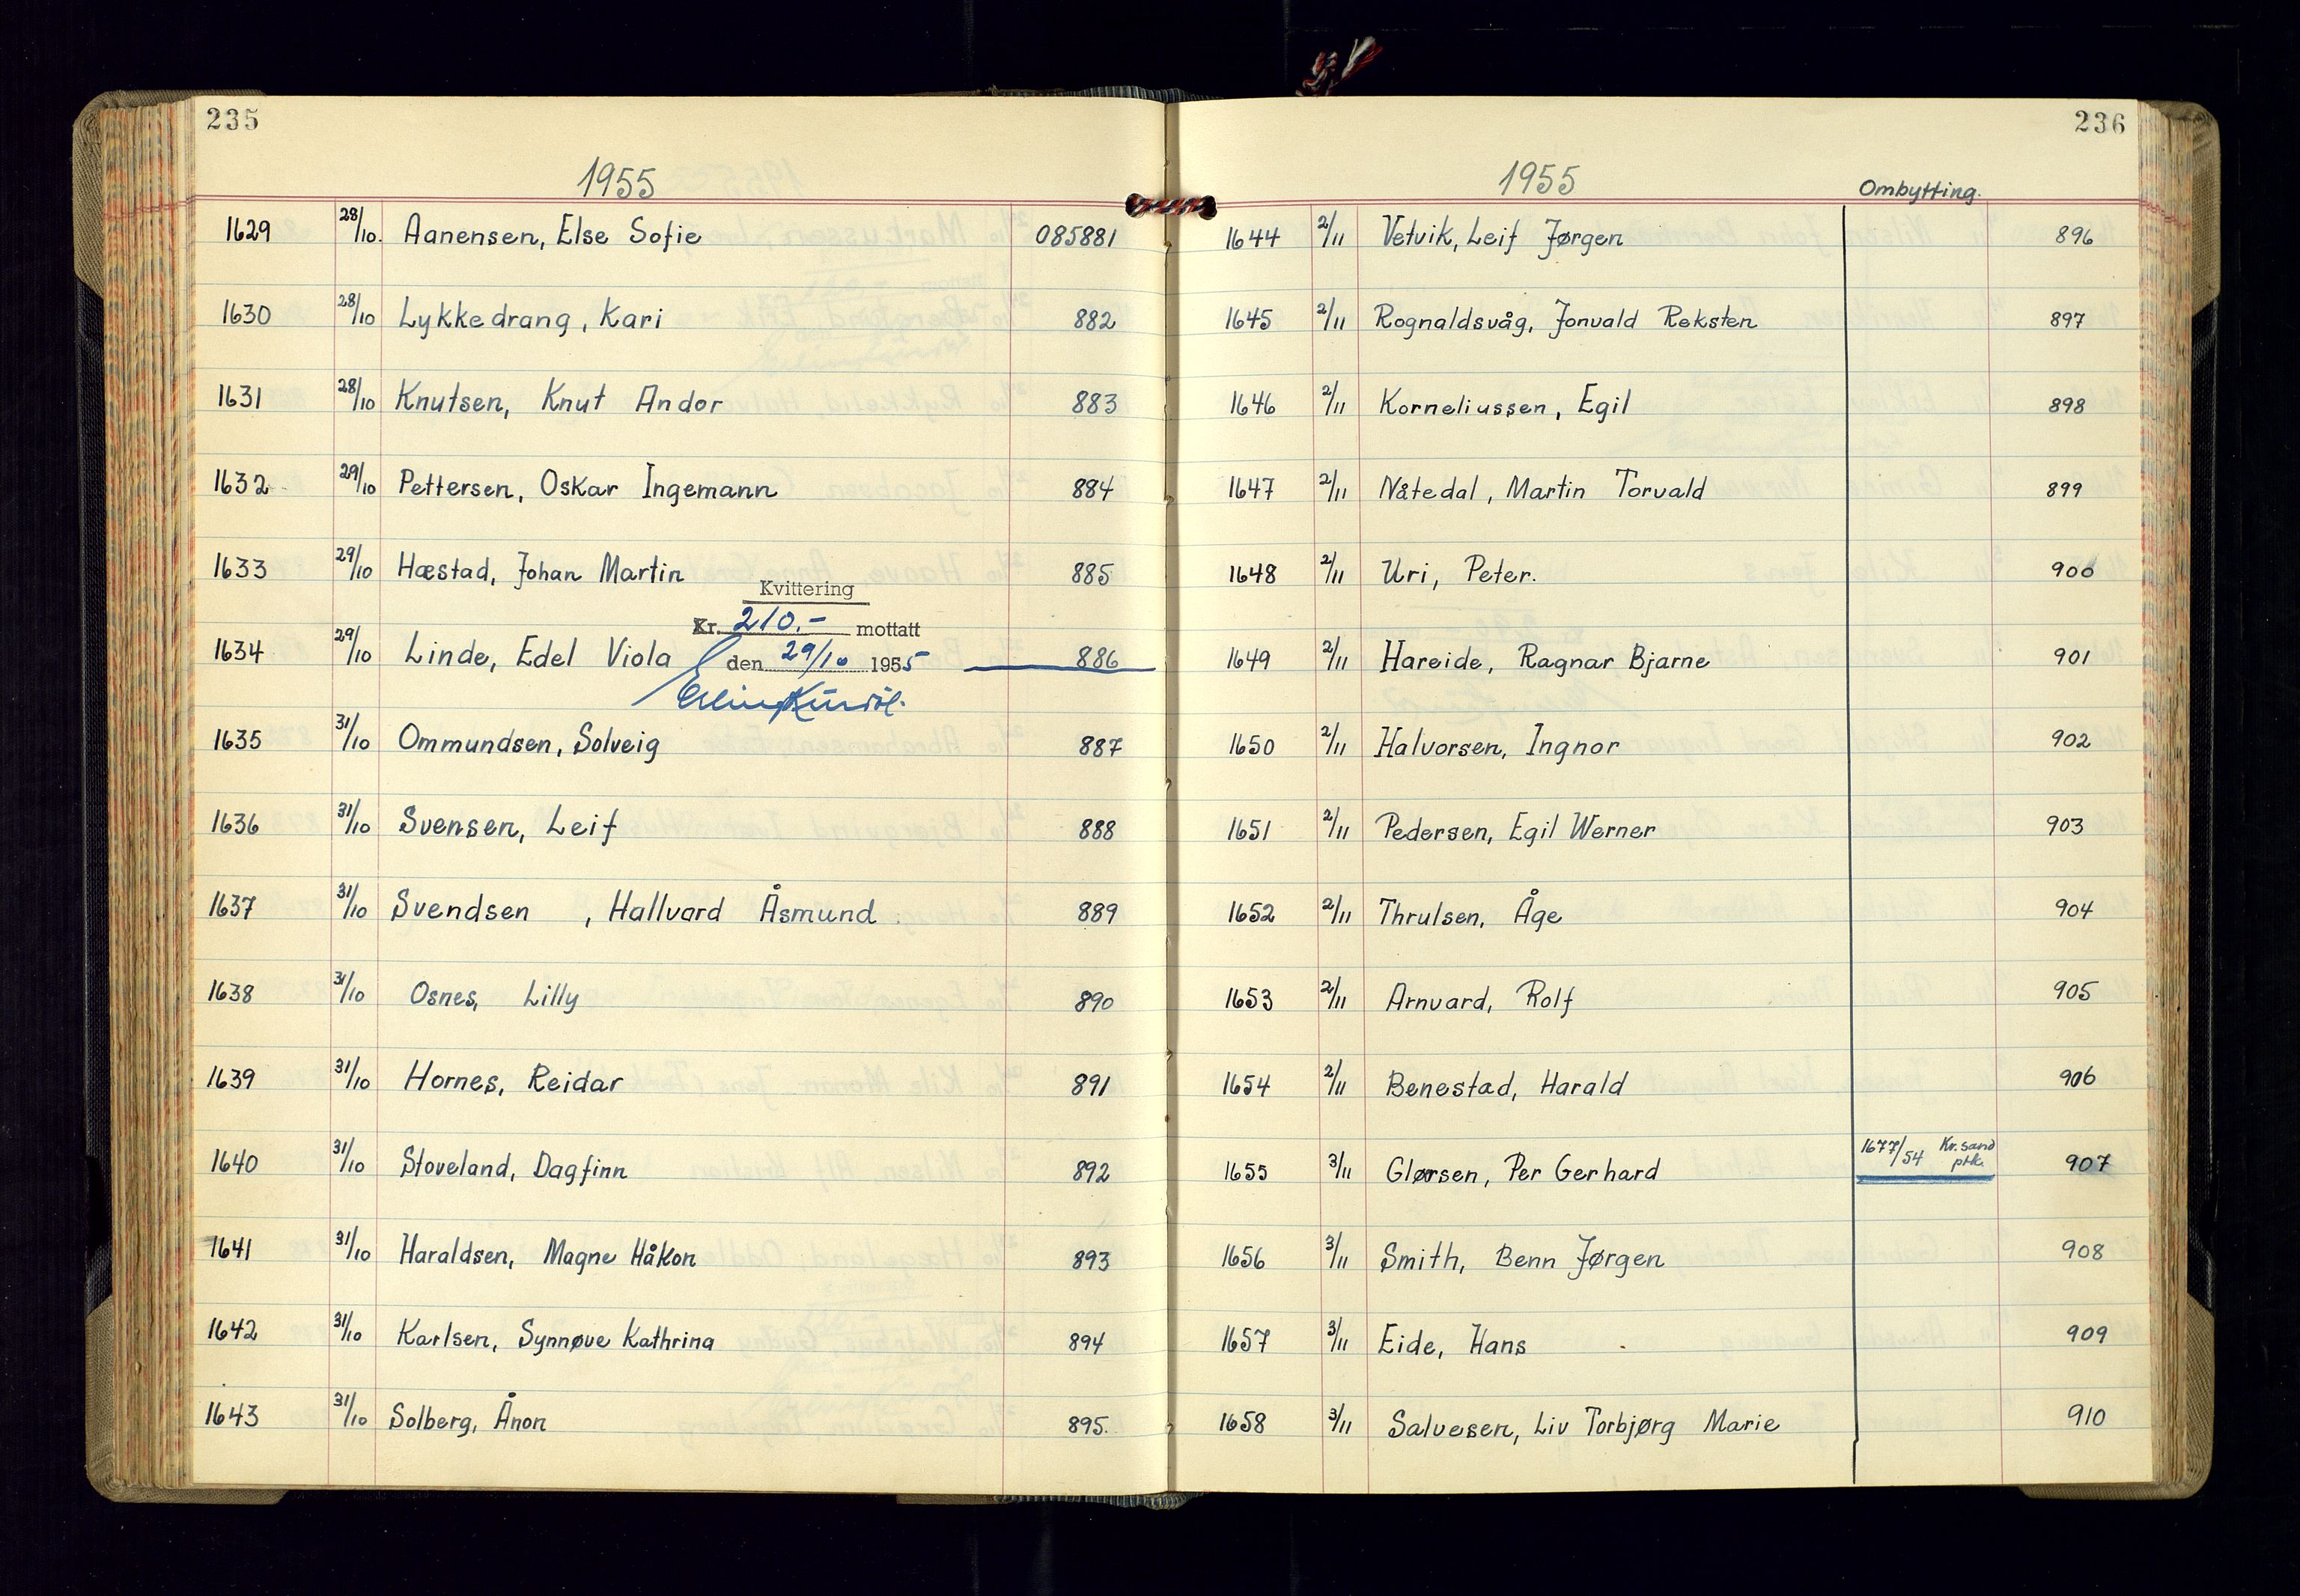 235
1955
1629 28/10. Aanensen, Else Sofie 085881
1630 28/10 Lykkedrang, Kari 882
1631 28/10 Knutsen, Knut Andor 883
1632 29/10 Pettersen, Oskar Ingemann 884
1633 29/10 Hæstad, Johan Martin 885
Kvittering
Kr. 210.- mottatt
1634 29/10 Linde, Edel Viola 886
den 29/10 1955
1635 31/10 Ommundsen, Solveig 887
1636 31/10 Svensen, Leif 888
1637 31/10 Svendsen , Hallvard Åsmund 889
1638 31/10 Osnes, Lilly 890
1639 31/10 Hornes, Reidar 891
1640 31/10 Stoveland, Dagfinn 892
1641 31/10 Haraldsen, Magne Håkon 893
1642 31/10 Karlsen, Synnøve Kathrina 894
1643 31/10 Solberg, Ånon 895.
236
1955
Ombytting.
1644 2/11 Vetvik, Leif Jørgen 896
1645 2/11 Rognaldsvåg, Jonvald Reksten 897
1646 2/11 Korneliussen, Egil 898
1647 2/11 Nåtedal, Martin Torvald 899
1648 2/11 Uri, Peter. 900
1649 2/11 Hareide, Ragnar Bjarne 901
1650 2/11 Halvorsen, Ingnor 902
1651 2/11 Pedersen, Egil Werner 903
1652 2/11 Thrulsen, Åge 904
1653 2/11 Arnvard, Rolf 905
1654 2/11 Benestad, Harald 906
1655 3/11 Glørsen, Per Gerhard 1677/54 Kr.sand ptk. 907
1656 3/11 Smith, Benn Jørgen 908
1657 3/11 Eide, Hans 909
1658 3/11 Salvesen, Liv Torbjørg Marie 910